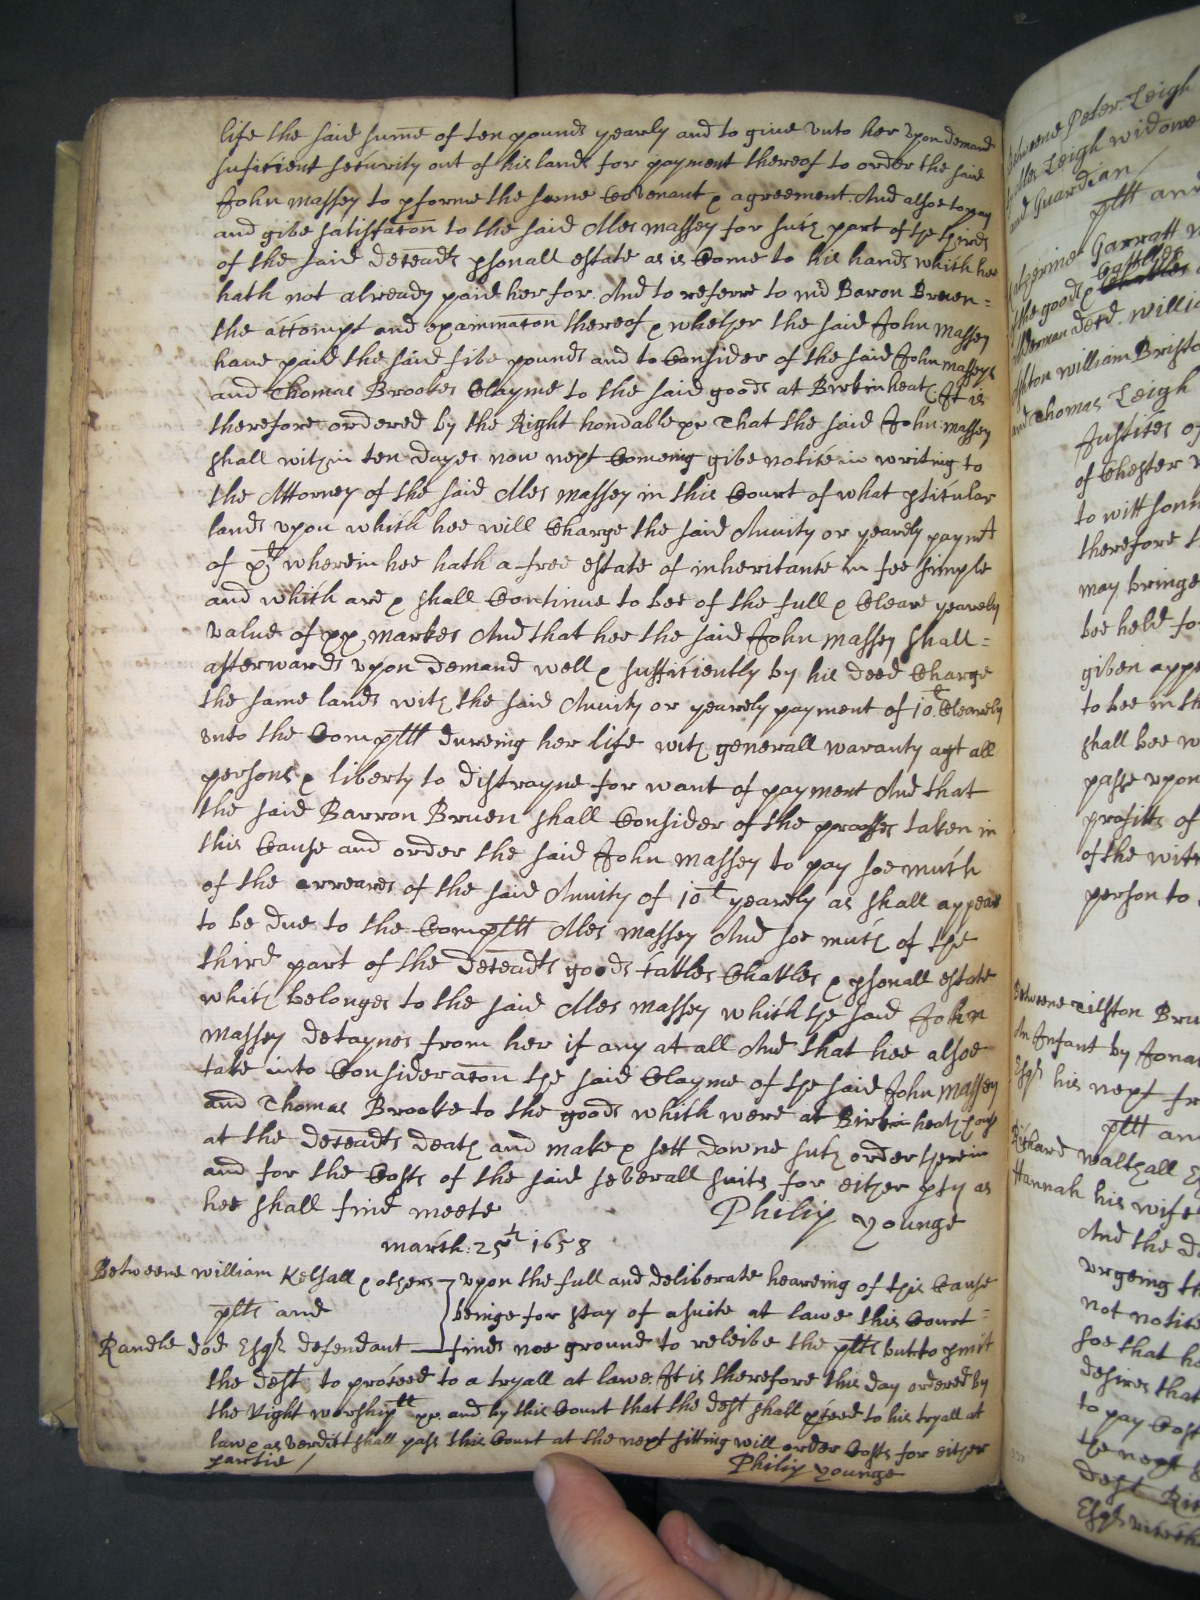 life the said sume of ten pounds yearly and to give vnto her vpon demand
suficient security out of his lands for payment thereof to order the said
John Massey to pforme the same Covenant & agreement. And alsoe to pay
and give satisfacon to the said Alles Massey for such part of the thirds
of the said deceadts psonall estate as is Come to his hands which hee
hath not already paid her for. And to referre to mr Baron Bruen =
the attompt and examinacon thereof & whether the said John Massey
have paid the said five pounds and to Consider of the said John Masseys
and Thomas Brookes Clayme to the said goods at Birkin heath. It is
therefore ordered by the Right honable &c That the said John Massey
shall within ten dayes now next Comeing give notice in writing to
the Attorney of the said Alles Massey in this Court of what pticular
lands vpon which hee will Charge the said Anuity or yearely paymt
of xl wherein hee hath a free estate of inheritance in fee simple
and which are & shall Continue to bee of the full & Cleare yearely
value of xx markes And that hee the said John Massey shall =
afterwards vpon demand well & sufficiently by his deed Charge
the same lands with the said Anuity or yearely payment of 10l Clearely
vnto the Complt dureing her life with generall waranty agt all
persons & liberty to distrayne for want of payment And that
the said Barron Bruen shall Consider of the prooffes taken in
this Cause and order the said John Massey to pay soe much
of the arreares of the said Anuity of 10l yearely as shall appeare
to be due to the Complt Alles Massey And soe much of the
third part of the deceadts goods Cattles Chattles & psonall estate
which belonges to the said Alles Massey which the said John
Massey detaynes from her if any at all And that hee alsoe
take into Consideracon the said Clayme of the said John Massey
and Thomas Brooke to the goods which were at Birkin heath
at the deceadts death and make & sett downe such order therein
and for the Costs of the said severall suits for either pty as
hee shall find meete
Philip Younge
March: 25th 1658
Betweene William Kelsall & others vpon the full and deliberate heareing of this Cause
plts and beinge for stay of a suite at lawe this Court =
Randle dod Esqr defendant finds noe ground to releive the plts but to pmit
the deft to proceed to a tryall at lawe. It is therefore this day ordered by
the Right worshipll &c. and by this Court that the deft shall pceed to his tryall at
law & as verdict shall pass this Court at the next sitting will order Costs for either
partie /
Philip Younge
Betweene Peter Leigh
Leigh widowe
and Guardian /
plt and
Garratt
the good
Alderman decd. Willi
William Bristo
and Thomas Leigh
Justices of
of Chester
to witt
therefore
may bringe
bee held fo
given appe
to bee in th
shall bee
passe vpon
profitts of
of the
person to
Betweene Tilston Bru
An Infant by Jona
Esqr his next fr
plt an
Richard Walthall E
Hannah his wife
And the d
vrgeing th
not notice
soe that he
desires that
to pay Cost
the next
deft
Esqr